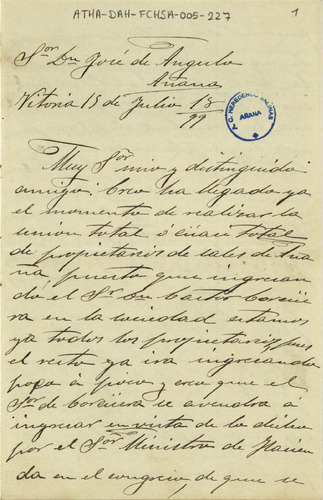 ATHA-DAH-FCHSA-005-227
1
Sor Dn José de Angulo
Añana
Vitoria 15 de Julio 18
99
C. HEREDEROS SALINAS
AÑANA
Muy Sor mio y distinguido
amigo: Creo ha llegado ya
el momento de realizar la
union total ó cuasi total
de propietarios de sales de Aña
na puesto que ingresan
do el Sr Dn Castor
en la sociedad estamos
ya todos los propietarios pues
el resto ya ira ingresando
poco a poco y creo que el
Sor de se avendra á
ingresar en vista de lo dicho
por el Sor Ministro de Hacien
da en el congreso de que se